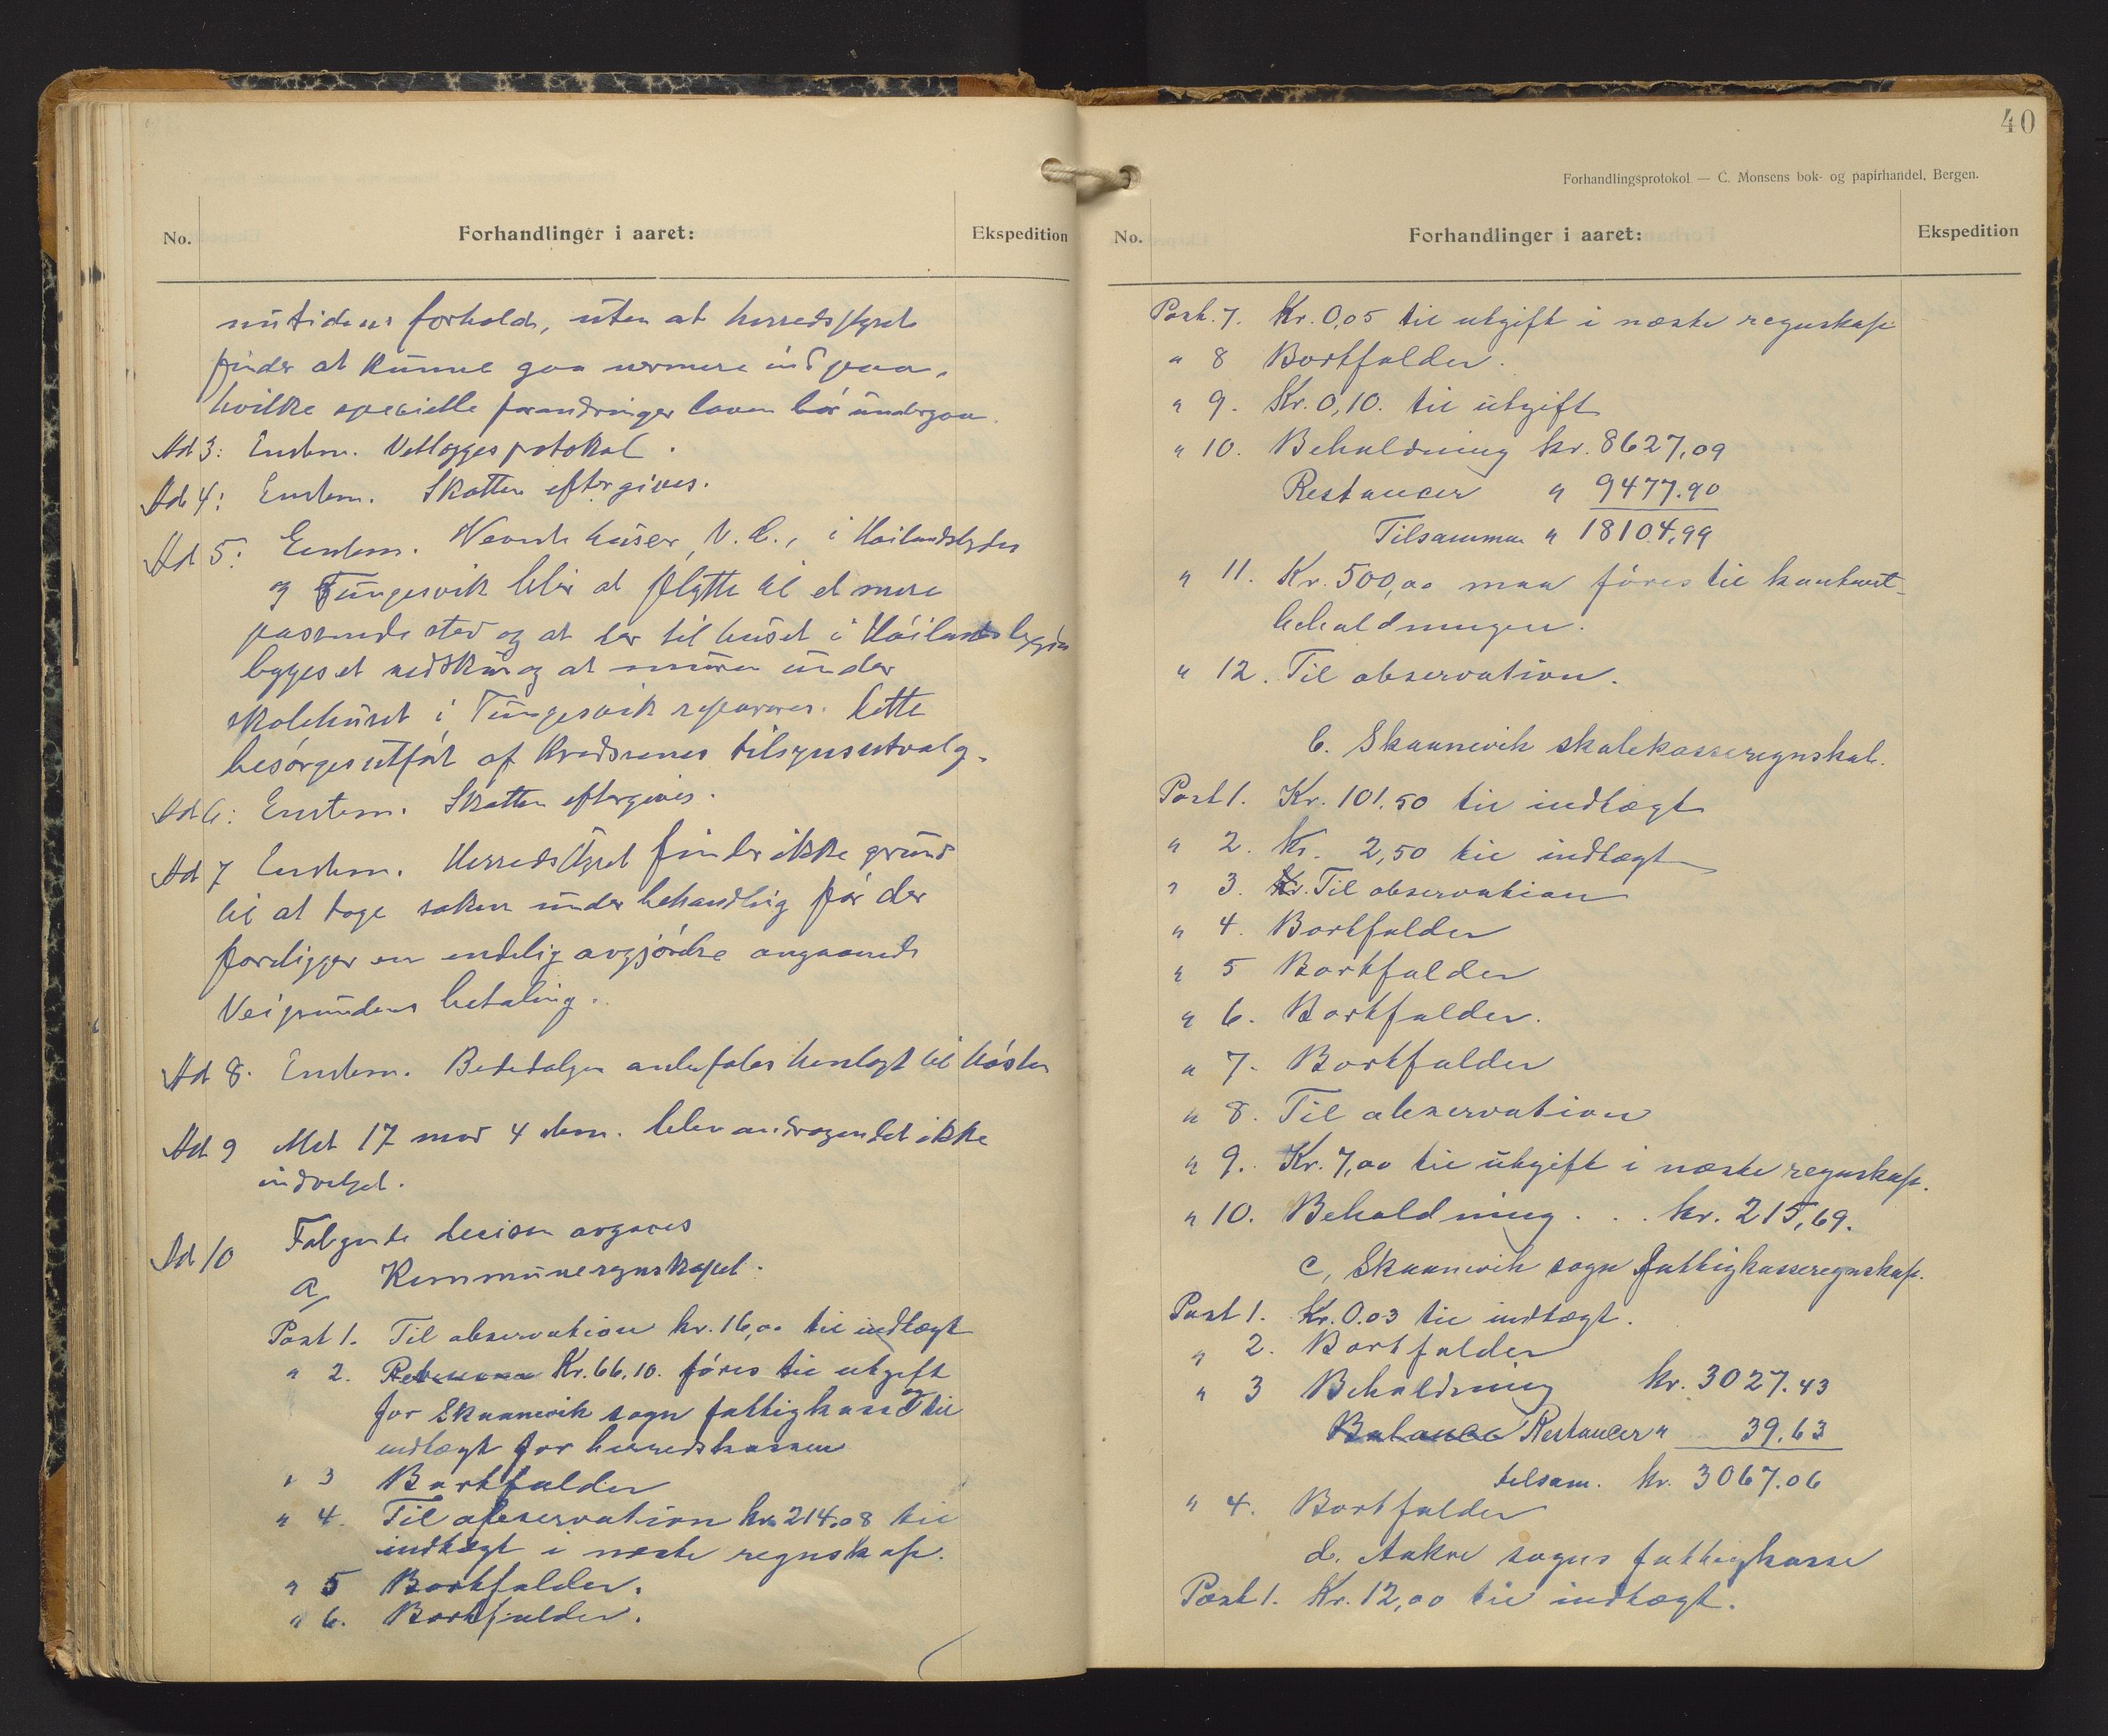 No.
Forhandlinger i aaret:
Ekspedition
nutidens forhold, uten at herredsstyret
finder at kunne gaa nermere ind paa,
hvilke specielle forandringer loven bør undergaa.
Ad 3: Enstem. Vetlægges protokol.
Ad 4: Enstem. Skatten eftergives.
Ad 5: Enstem. Nevnte huser, N. B., i Høilandsbygden
og Tungesvik blir at flytte til et mere
passende sted og at der til huset i Høilandsbygden
bygges et vedskur og at muren under
skolehuset i Tungesvik repareres. Dette
besørges utført af Kredsenes tilsynsutvalg.
Ad 6: Enstem. Skatten eftergives.
Ad 7 Enstem. Herredsstyret finder ikke grund
til at tage saken under behandling før der
foreligger en endelig avgjørelse angaaende
Veigrundens betaling.
Ad 8. Enstem. anbefales henlagt til høsten
Ad 9 Met 17 mod 4 stem. blev andragendet ikke
indvelget.
Ad 10 Følgende decision avgaves
a, Kommuneregnskapet.
Post 1. Til observation kr. 16,00 til indtægt
" 2. Kr. 66.10. føres til utgift
for Skaanevik sogn fattigkasse og til
indtægt for herredskassen
" 3 Bortfalder
" 4. Til observation kr. 214.08 til
indtægt i neste regnskap.
" 5 Bortfalder.
" 6. Bortfalder.
40
Forhandlingsprotokol — C. Monsens bok- og papirhandel, Bergen.
No.
Forhandlinger i aaret:
Ekspedition
Post. 7. Kr. 0,05 til utgift i næste regnskap
" 8 Bortfalder.
" 9. Kr. 0,10. til utgift
" 10. Beholdning kr. 8627,09
Restancer " 9477.90
Tilsammen " 18104,99
" 11. Kr. 500,00 maa føres til kontant-
beholdningen.
" 12. Til observation.
b. Skaanevik skolekasseregnskab.
Post 1. Kr. 101.50 til indtægt
" 2. Kr. 2,50 til indtægt
" 3. Kr. Til observation
" 4. Bortfalder
" 5 Bortfalder
" 6. Bortfalder.
" 7. Bortfalder
" 8. Til observation
" 9. Kr. 7,00 til utgift i næste regnskap.
" 10. Beholdning . . . kr. 215,69.
c, Skaanevik sogn fattigkasseregnskap.
Post 1. Kr. 0.03 til indtægt.
" 2. Bortfalder
" 3 Beholdning kr. 3027.43
Balance Restancer " 39.63
tilsam. kr. 3067.06
" 4. Bortfalder
d. Aakre sogns fattigkasse
Post 1. Kr. 12,00 til indtægt.